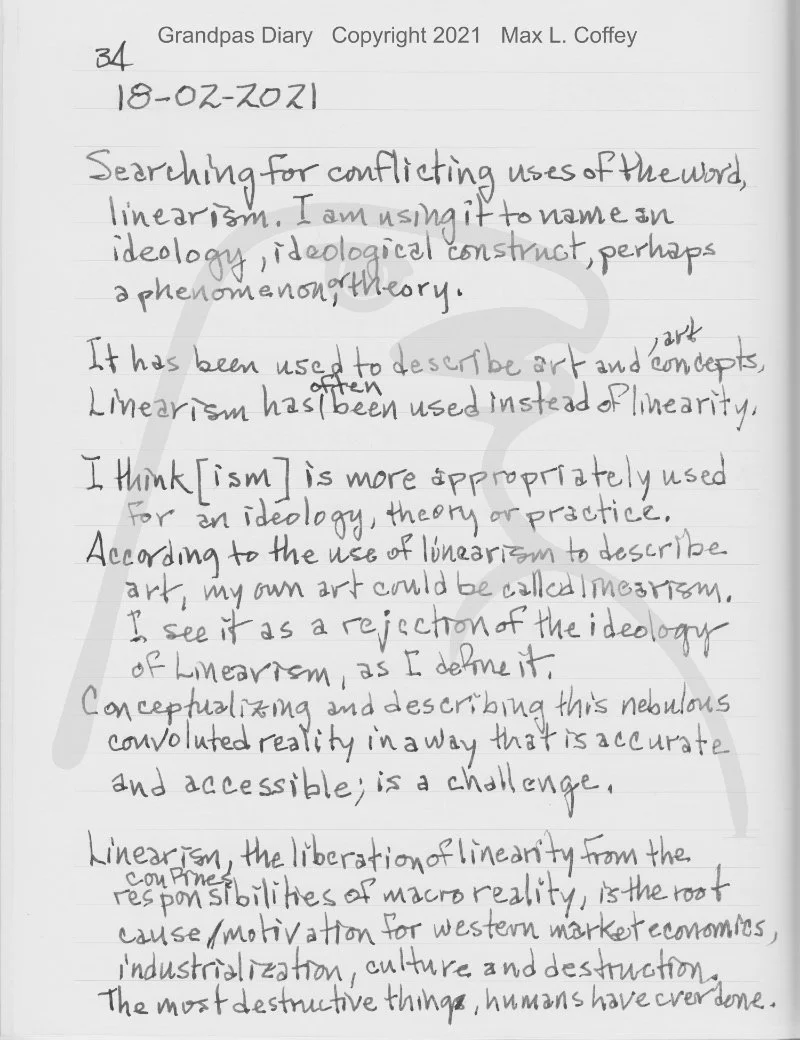 Grandpas Diary Copyright 2021 Max L. Coffey
34
18-02-2021
Searching for conflicting uses of the word,
linearism. I am using it to name an
ideology, ideological construct, perhaps
a phenomenon, or theory.
, art
It has been used to describe art and concepts,
often
Linearism has been used instead of linearity.
I think [ism] is more appropriately used
for an ideology, theory or practice.
According to the use of linearism to describe
art, my own art could be called linearism.
I see it as a rejection of the ideology
of Linearism, as I define it.
Conceptualizing and describing this nebulous
convoluted reality in a way that is accurate
and accessible; is a challenge.
Linearism, the liberation of linearity from the
confines
responsibilities of macro reality, is the root
cause/motivation for western market economics,
industrialization, culture and destruction.
The most destructive things, humans have ever done.